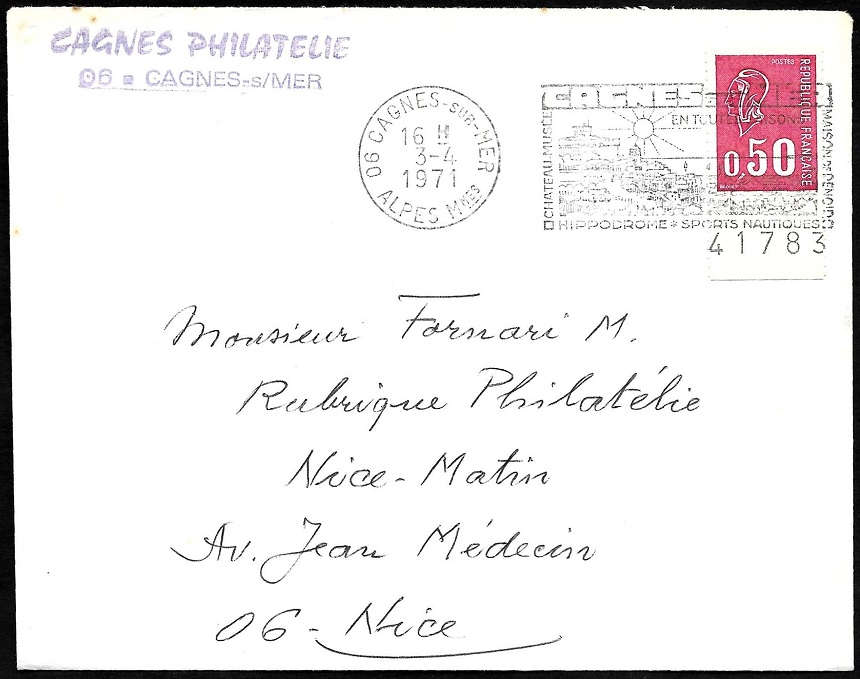 CAGNES PHILATELIE
06 - CAGNES-s/MER
06 CAGNES-SUR-MER
16 H
3-4
1971
ALPES MMES
CAGNES
EN TOUTES SAISONS
CHATEAU-MUSÉE
MAISON DE RENOIR
HIPPODROME * SPORTS NAUTIQUES
POSTES
REPUBLIQUE FRANÇAISE
0,50
41783
Monsieur Fornari M.
Rubrique Philatélie
Nice-Matin
Av. Jean Médecin
06-Nice